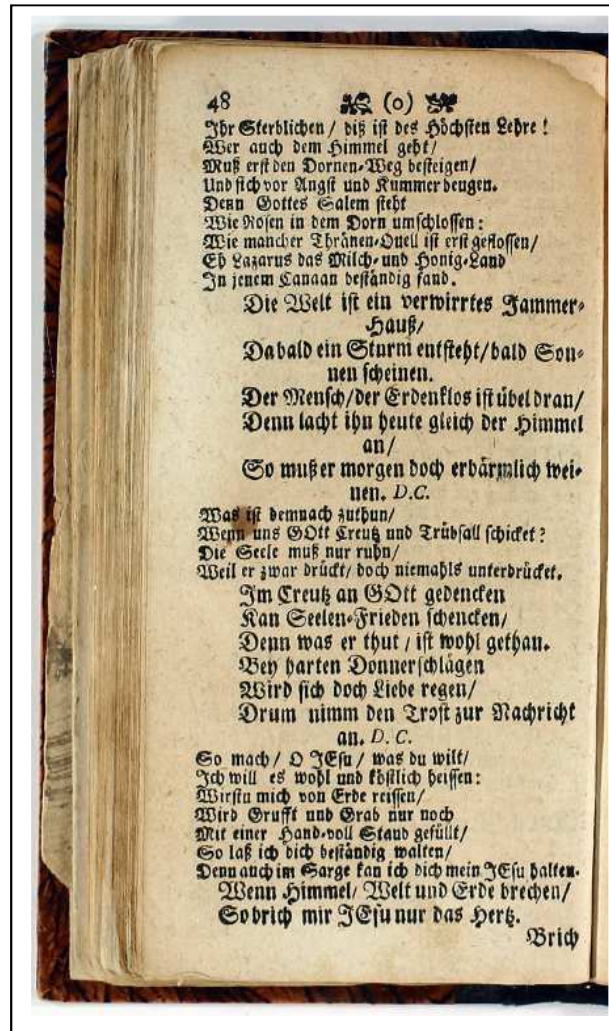 48 (o)
Ihr Sterblichen / diß ist des Höchsten Lehre!
Wer auch dem Himmel geht/
Muß erst den Dornen-Weg besteigen/
Und sich vor Angst und Kummer beugen.
Denn Gottes Salem steht
Wie Rosen in dem Dorn umschlossen:
Wie mancher Thränen-Quell ist erst geflossen/
Eh Lazarus das Milch- und Honig-Land
In jenem Canaan beständig fand.
Die Welt ist ein verwirrtes Jammer-
Hauß/
Da bald ein Sturm entsteht/bald Son-
nen scheinen.
Der Mensch/der Erdenklos ist übel dran/
Denn lacht ihn heute gleich der Himmel
an/
So muß er morgen doch erbärmlich wei-
nen. D.C.
Was ist demnach zuthun/
Wenn uns GOtt Creutz und Trübsall schicket?
Die Seele muß nur ruhn/
Weil er zwar drückt/ doch niemahls unterdrücket.
Im Creutz an GOtt gedencken
Kan Seelen-Frieden schencken/
Denn was er thut / ist wohl gethan.
Bey harten Donnerschlägen
Wird sich doch Liebe regen/
Drum nimm den Trost zur Nachricht
an. D. C.
So mach/ O JEsu / was du wilt/
Ich will es wohl und köstlich heissen:
Wirstu mich von Erde reissen/
Wird Grufft und Grab nur noch
Mit einer Hand-voll Staub gefüllt/
So laß ich dich beständig walten/
Denn auch im Sarge kan ich dich mein JEsu halten.
Wenn Himmel/ Welt und Erde brechen/
So brich mir JEsu nur das Hertz.
Brich